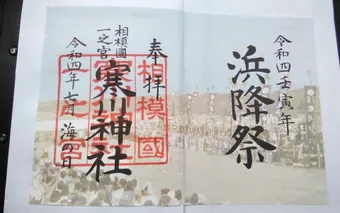 令和四壬寅年
浜降祭
奉拝
相模國
一之宮
寒川神社
令和四年七月 海の日
相模國